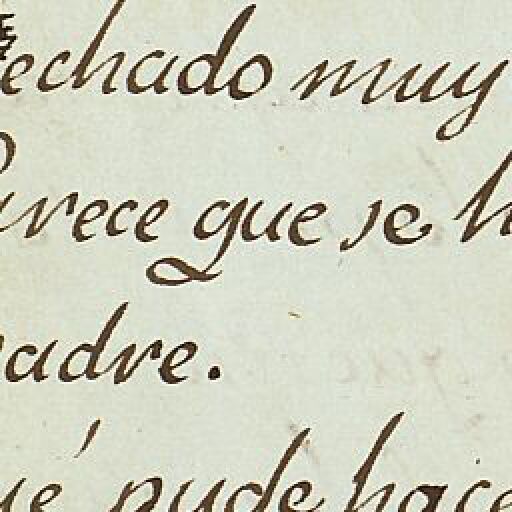 echado muy
arece que se h
adre.
ué pude hace